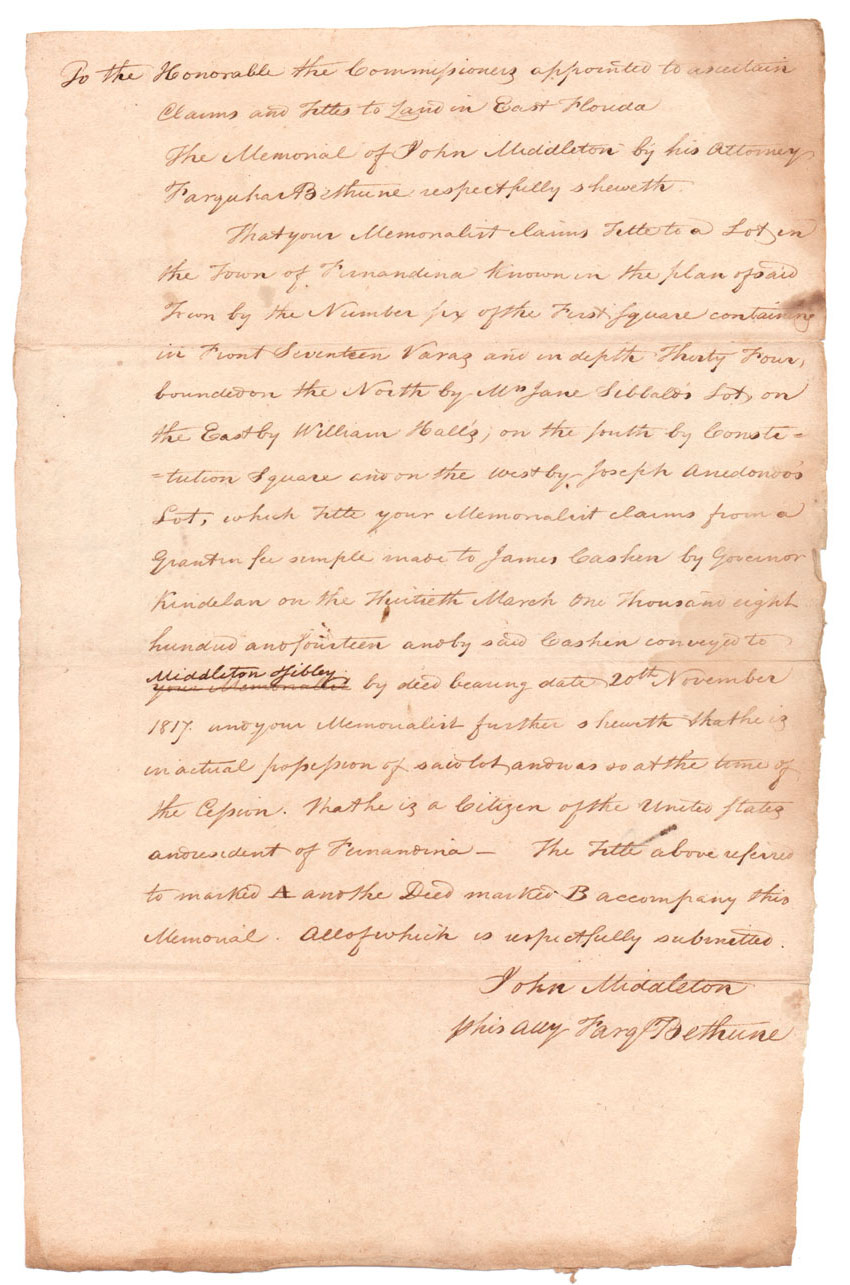 To the Honorable the Commissioners appointed to ascertain
Claims and Titles to Land in East Florida
The Memorial of John Middleton by his Attorney
Farquhar Bethune respectfully sheweth.
That your Memorialist claims Title to a Lot in
the Town of Fernandina known in the plan of said
Town by the Number six of the First Square containing
in Front Seventeen Varas and in depth Thirty Four,
bounded on the North by Mrs Jane Sibbald's Lot, on
the East by William Hall's, on the South by Consti=
=tution Square and on the West by Joseph Arredondo's
Lot, which Title your Memorialist claims from a
Grant in fee simple made to James Cashen by Governor
Kindelan on the Thirtieth March One Thousand eight
hundred and fourteen and by said Cashen conveyed to
Middleton & Sibley
your Memorialist by deed bearing date 20th November
1817. and your Memorialist further sheweth that he is
in actual possession of said lot, and was so at the time of
the Cession. That he is a Citizen of the United States
and resident of Fernandina — The Title above referred
to marked A and the Deed marked B accompany this
Memorial. All of which is respectfully submitted.
John Middleton
p his Atty Farqr Bethune